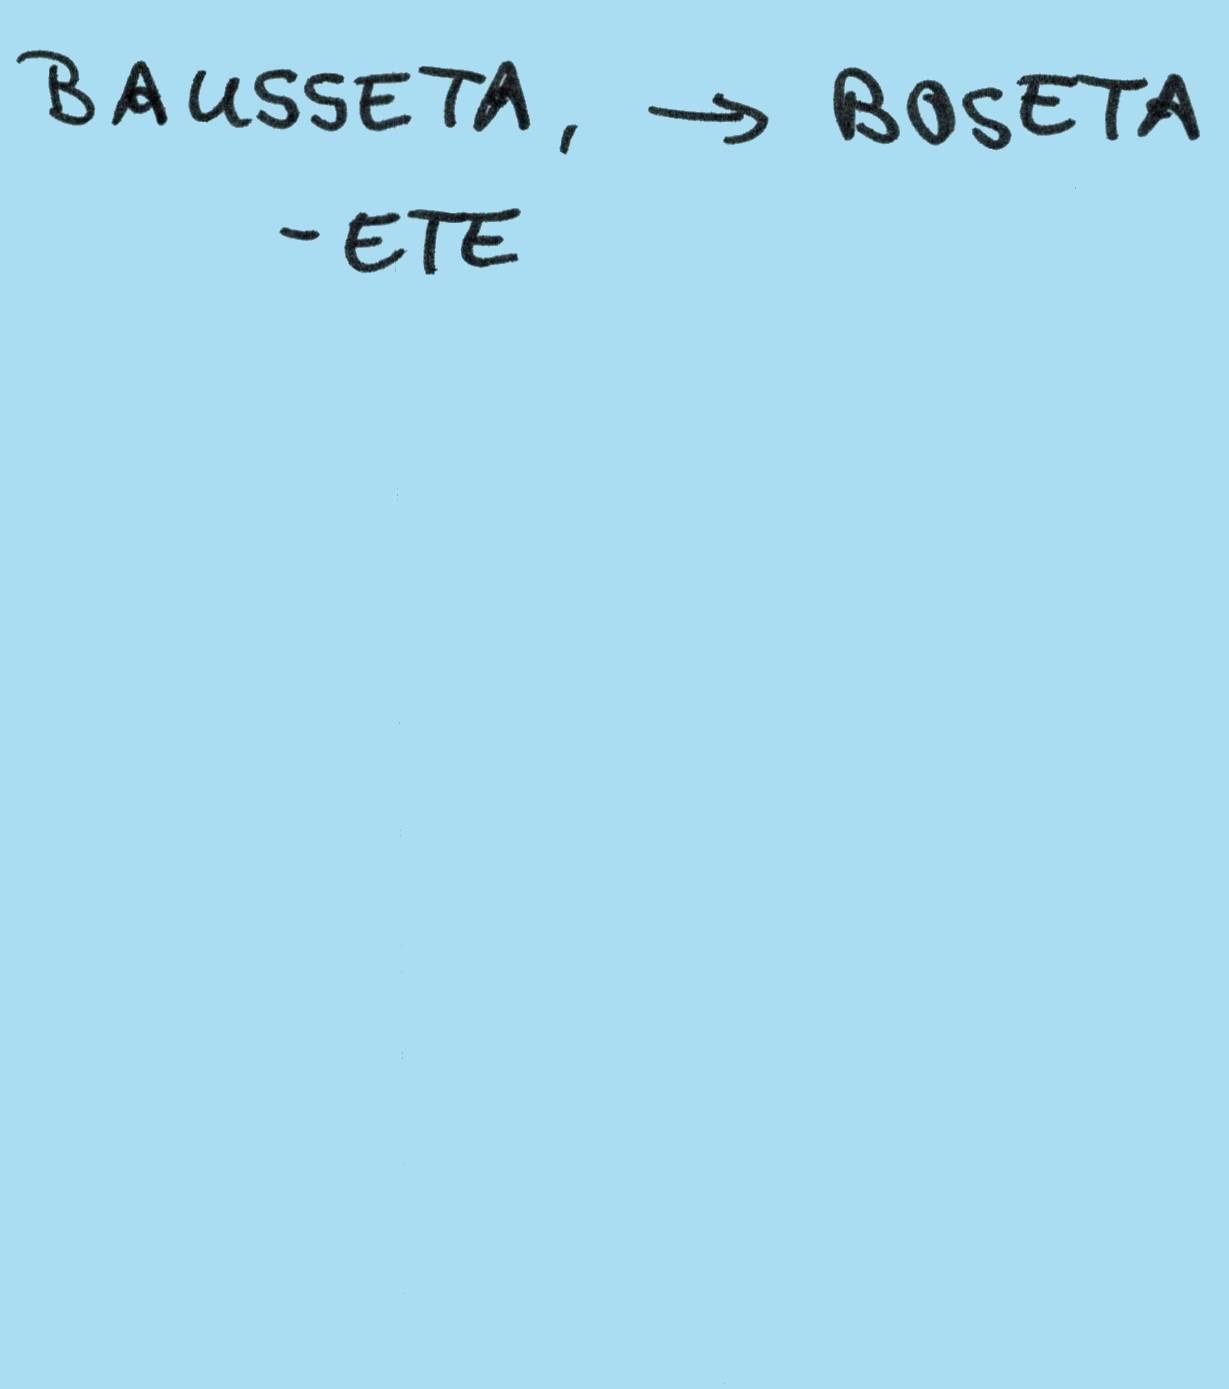 BAUSSETA, → BOSETA
-ETE